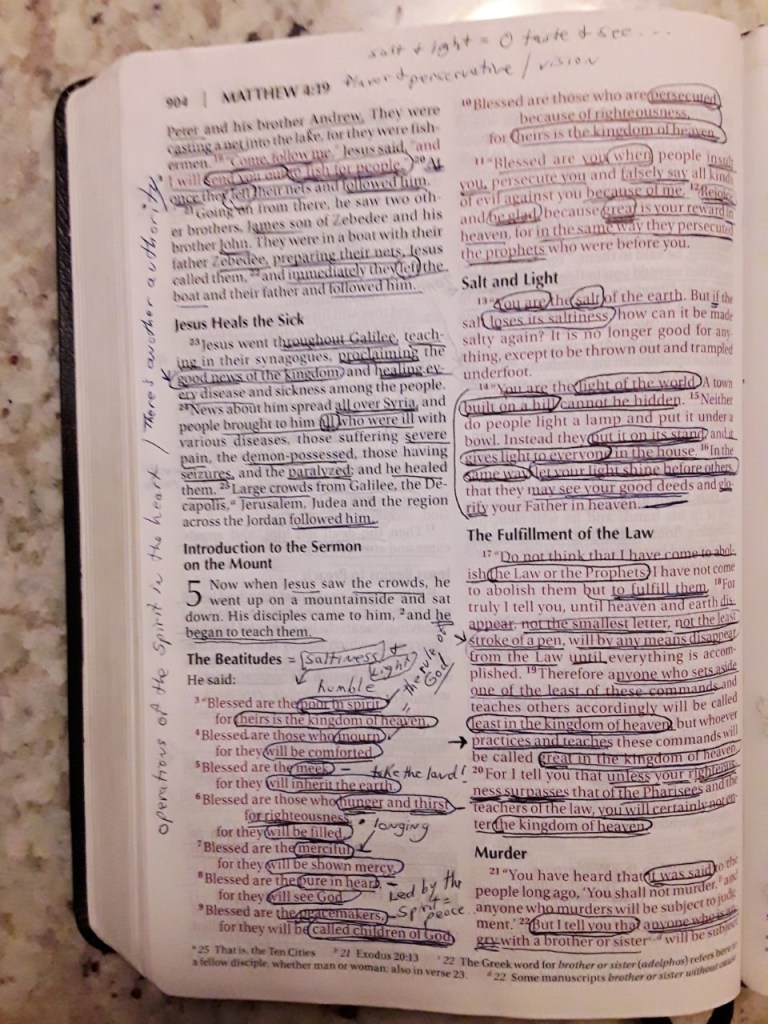 salt + light = 0 taste & see ...
flavor & perservative / vision
904 | MATTHEW 4:19
Peter and his brother Andrew. They were
casting a net into the lake, for they were fish-
ermen. 19 "Come, follow me," Jesus said, "and
I will send you out to fish for people." 20 At
once they left their nets and followed him.
21 Going on from there, he saw two oth-
er brothers, James son of Zebedee and his
brother John. They were in a boat with their
father Zebedee, preparing their nets. Jesus
called them, 22 and immediately they left the
boat and their father and followed him.
Jesus Heals the Sick
23 Jesus went throughout Galilee, teach-
ing in their synagogues, proclaiming the
good news of the kingdom, and healing ev-
ery disease and sickness among the people.
24 News about him spread all over Syria, and
people brought to him all who were ill with
various diseases, those suffering severe
pain, the demon-possessed, those having
seizures, and the paralyzed; and he healed
them. 25 Large crowds from Galilee, the De-
capolis,a Jerusalem, Judea and the region
across the Jordan followed him.
Introduction to the Sermon
on the Mount
5 Now when Jesus saw the crowds, he
went up on a mountainside and sat
down. His disciples came to him, 2 and he
began to teach them.
The Beatitudes = saltiness +
light
He said:
humble
the rule of
God
3 "Blessed are the poor in spirit,
for theirs is the kingdom of heaven.
4 Blessed are those who mourn,
for they will be comforted.
5 Blessed are the meek, – take the land!
for they will inherit the earth.
6 Blessed are those who hunger and thirst
for righteousness,
for they will be filled. longing
7 Blessed are the merciful,
for they will be shown mercy.
8 Blessed are the pure in heart, – Led by the
for they will see God. Spirit =
9 Blessed are the peacemakers, – peace
for they will be called children of God.
10 Blessed are those who are persecuted
because of righteousness,
for theirs is the kingdom of heaven.
11 "Blessed are you when people insult
you, persecute you and falsely say all kinds
of evil against you because of me. 12 Rejoice
and be glad, because great is your reward in
heaven, for in the same way they persecuted
the prophets who were before you.
Salt and Light
13 "You are the salt of the earth. But if the
salt loses its saltiness, how can it be made
salty again? It is no longer good for any-
thing, except to be thrown out and trampled
underfoot.
14 "You are the light of the world. A town
built on a hill cannot be hidden. 15 Neither
do people light a lamp and put it under a
bowl. Instead they put it on its stand, and it
gives light to everyone in the house. 16 In the
same way, let your light shine before others,
that they may see your good deeds and glo-
rify your Father in heaven.
The Fulfillment of the Law
17 "Do not think that I have come to abol-
ish the Law or the Prophets; I have not come
to abolish them but to fulfill them. 18 For
truly I tell you, until heaven and earth dis-
appear, not the smallest letter, not the least
stroke of a pen, will by any means disappear
from the Law until everything is accom-
plished. 19 Therefore anyone who sets aside
one of the least of these commands and
teaches others accordingly will be called
least in the kingdom of heaven, but whoever
practices and teaches these commands will
be called great in the kingdom of heaven.
20 For I tell you that unless your righteous-
ness surpasses that of the Pharisees and the
teachers of the law, you will certainly not en-
ter the kingdom of heaven.
Murder
21 "You have heard that it was said to the
people long ago, 'You shall not murder,b and
anyone who murders will be subject to judg-
ment.' 22 But I tell you that anyone who is an-
gry with a brother or sister will be subject
a 25 That is, the Ten Cities b 21 Exodus 20:13 c 22 The Greek word for brother or sister (adelphos) refers here to
a fellow disciple, whether man or woman; also in verse 23. d 22 Some manuscripts brother or sister without cause
operations of the Spirit in the heart / There's another authority.